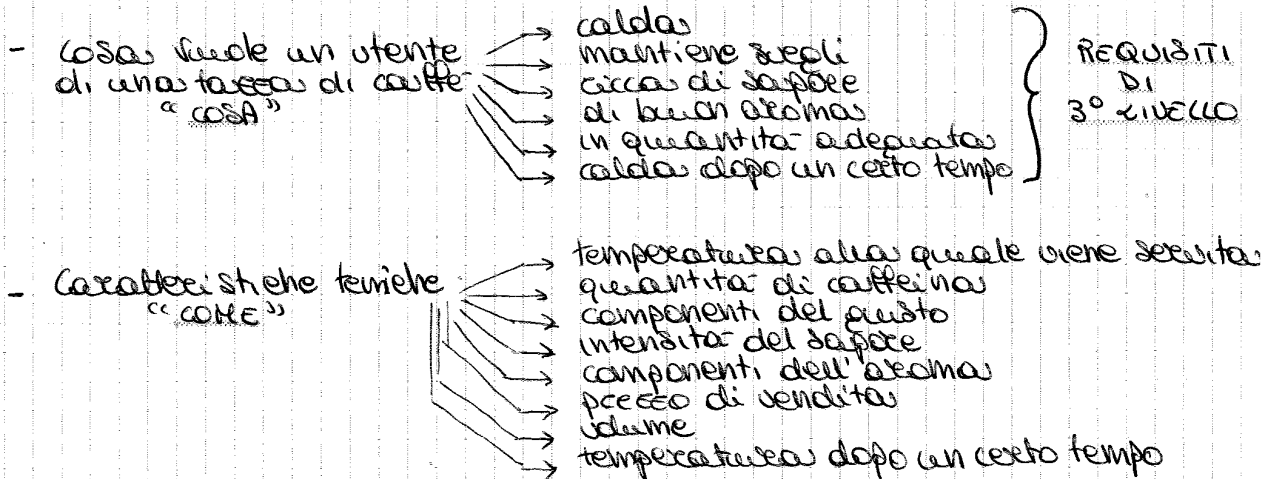 - cosa vuole un utente
di una tazza di caffè
"COSA"
calda
mantiene svegli
ricca di sapore
di buon aroma
in quantità adeguata
calda dopo un certo tempo
REQUISITI
DI
3° LIVELLO
- Caratteristiche tecniche
"COME"
temperatura alla quale viene servita
quantità di caffeina
componenti del gusto
intensità del sapore
componenti dell'aroma
prezzo di vendita
volume
temperatura dopo un certo tempo